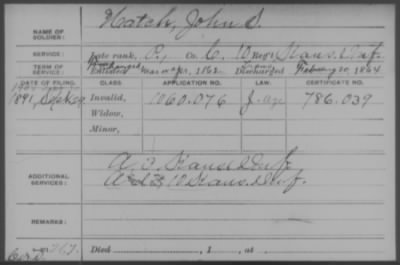 NAME OF SOLDIER: Hatch, John S.
SERVICE: Late rank, P, Co. C, 10 Reg't Kans. Inf.
TERM OF SERVICE: Enlisted 1862 Discharged February 20, 1864
DATE OF FILING. CLASS APPLICATION NO. LAW. CERTIFICATE NO.
1891, Invalid, 1060.076 J. 786.039
Widow,
Minor,
ADDITIONAL SERVICES: A. 3 Kans. Inf.
10 Kans. Inf.
REMARKS:
Died , 1 , at